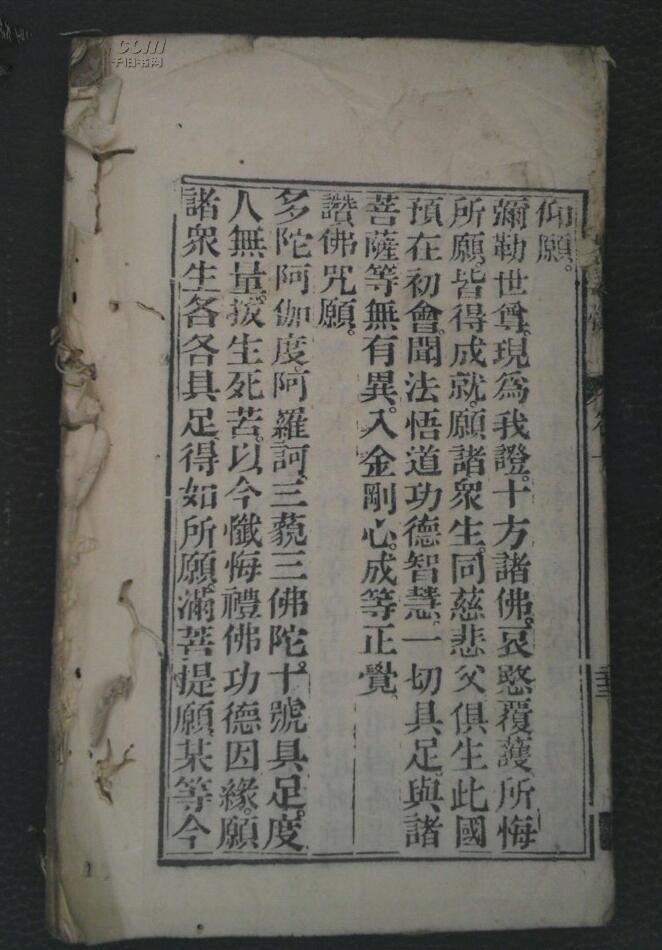 仰願。
彌勒世尊。現爲我證。十方諸佛。哀愍覆護。所悔
所願。皆得成就。願諸衆生。同慈悲父。俱生此國
預在初會。聞法悟道。功德智慧。一切具足。與諸
菩薩等無有異。入金剛心。成等正覺
讚佛咒願。
多陀阿伽度。阿羅訶。三藐三佛陀。十號具足。度
人無量。拔生死苦。以今懺悔禮佛功德因緣。願
諸衆生各各具足。得如所願。滿菩提願。某等今
.com
千旧书网